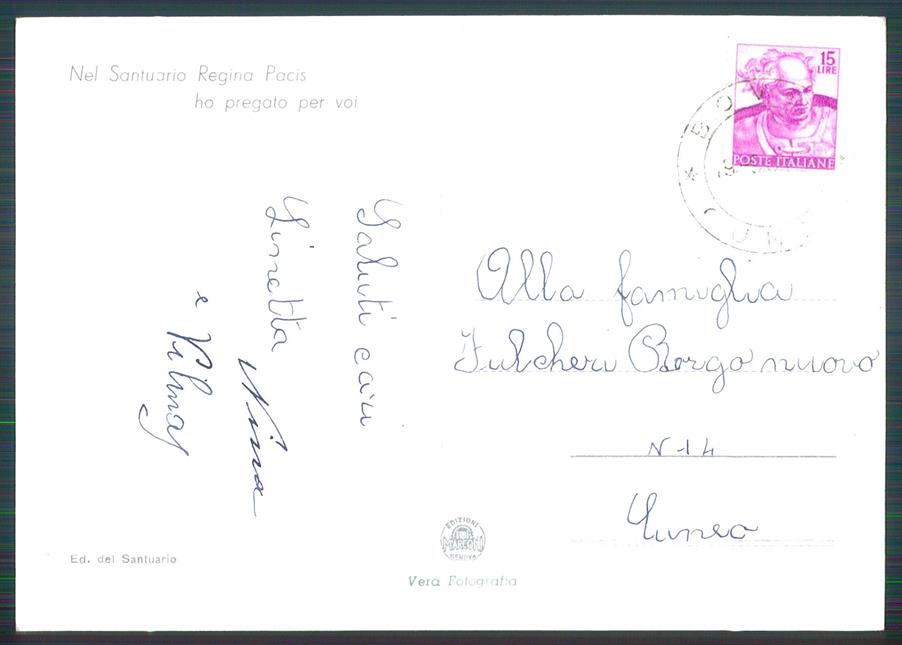 Nel Santuario Regina Pacis
ho pregato per voi
15
LIRE
POSTE ITALIANE
Saluti cari
Linetta
Nina
e Vilma
Alla famiglia
Fulcheri Borgo nuovo
N-14
Cuneo
EDIZIONI
GENOVA
Ed. del Santuario
Vera Fotografia